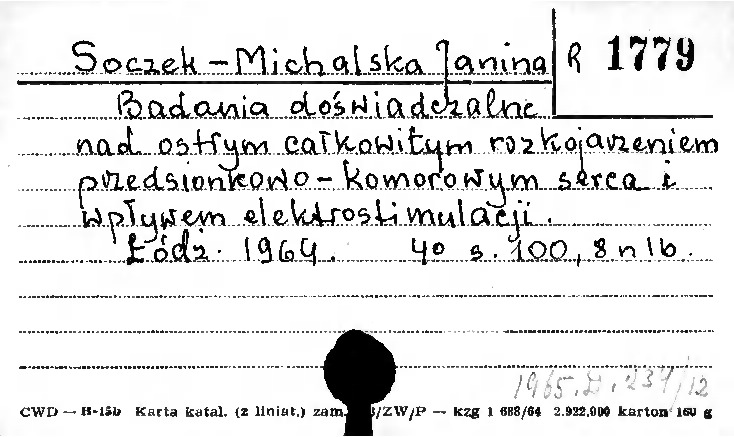 Soczek-Michalska Janina R 1779
Badania doświadczalne
nad ostrym całkowitym rozkojarzeniem
przedsionkowo-komorowym serca i
wpływem elektrostimulacji.
Łódź. 1964. 4° s. 100, 8 nlb.
1965.D.234/12
CWD — H-15b Karta katal. (z liniat.) zam. /ZW/P — kzg 1 688/64 2.922.000 karton 160 g